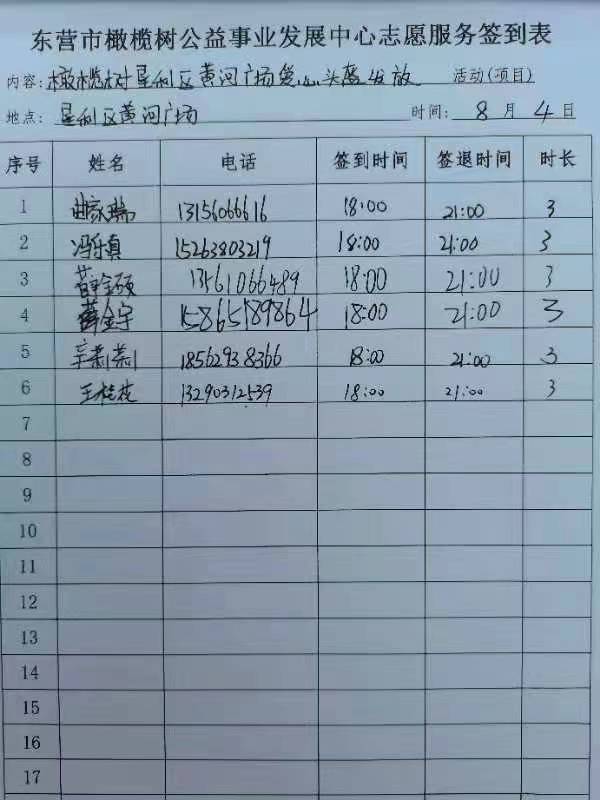 东营市橄榄树公益事业发展中心志愿服务签到表
内容: 橄榄树垦利区黄河广场爱心头盔发放 活动(项目)
地点: 垦利区黄河广场 时间: 8 月 4 日
序号 姓名 电话 签到时间 签退时间 时长
1 曲家瑞 13156066616 18:00 21:00 3
2 冯乐真 15263803219 18:00 21:00 3
3 13561066489 18:00 21:00 3
4 薛金宇 15865189864 18:00 21:00 3
5 辛莉莉 18562938366 18:00 21:00 3
6 王桂花 13290312539 18:00 21:00 3
7
8
9
10
11
12
13
14
15
16
17